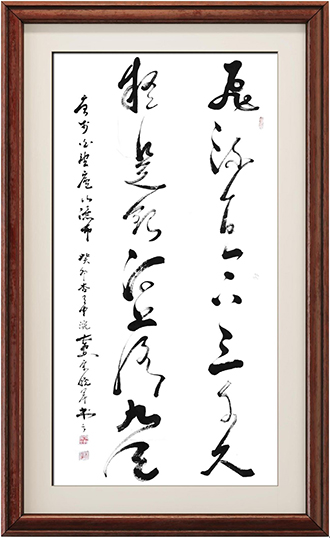 飛流直下三千尺
疑是銀河落九天
李白望廬山瀑布 癸卯